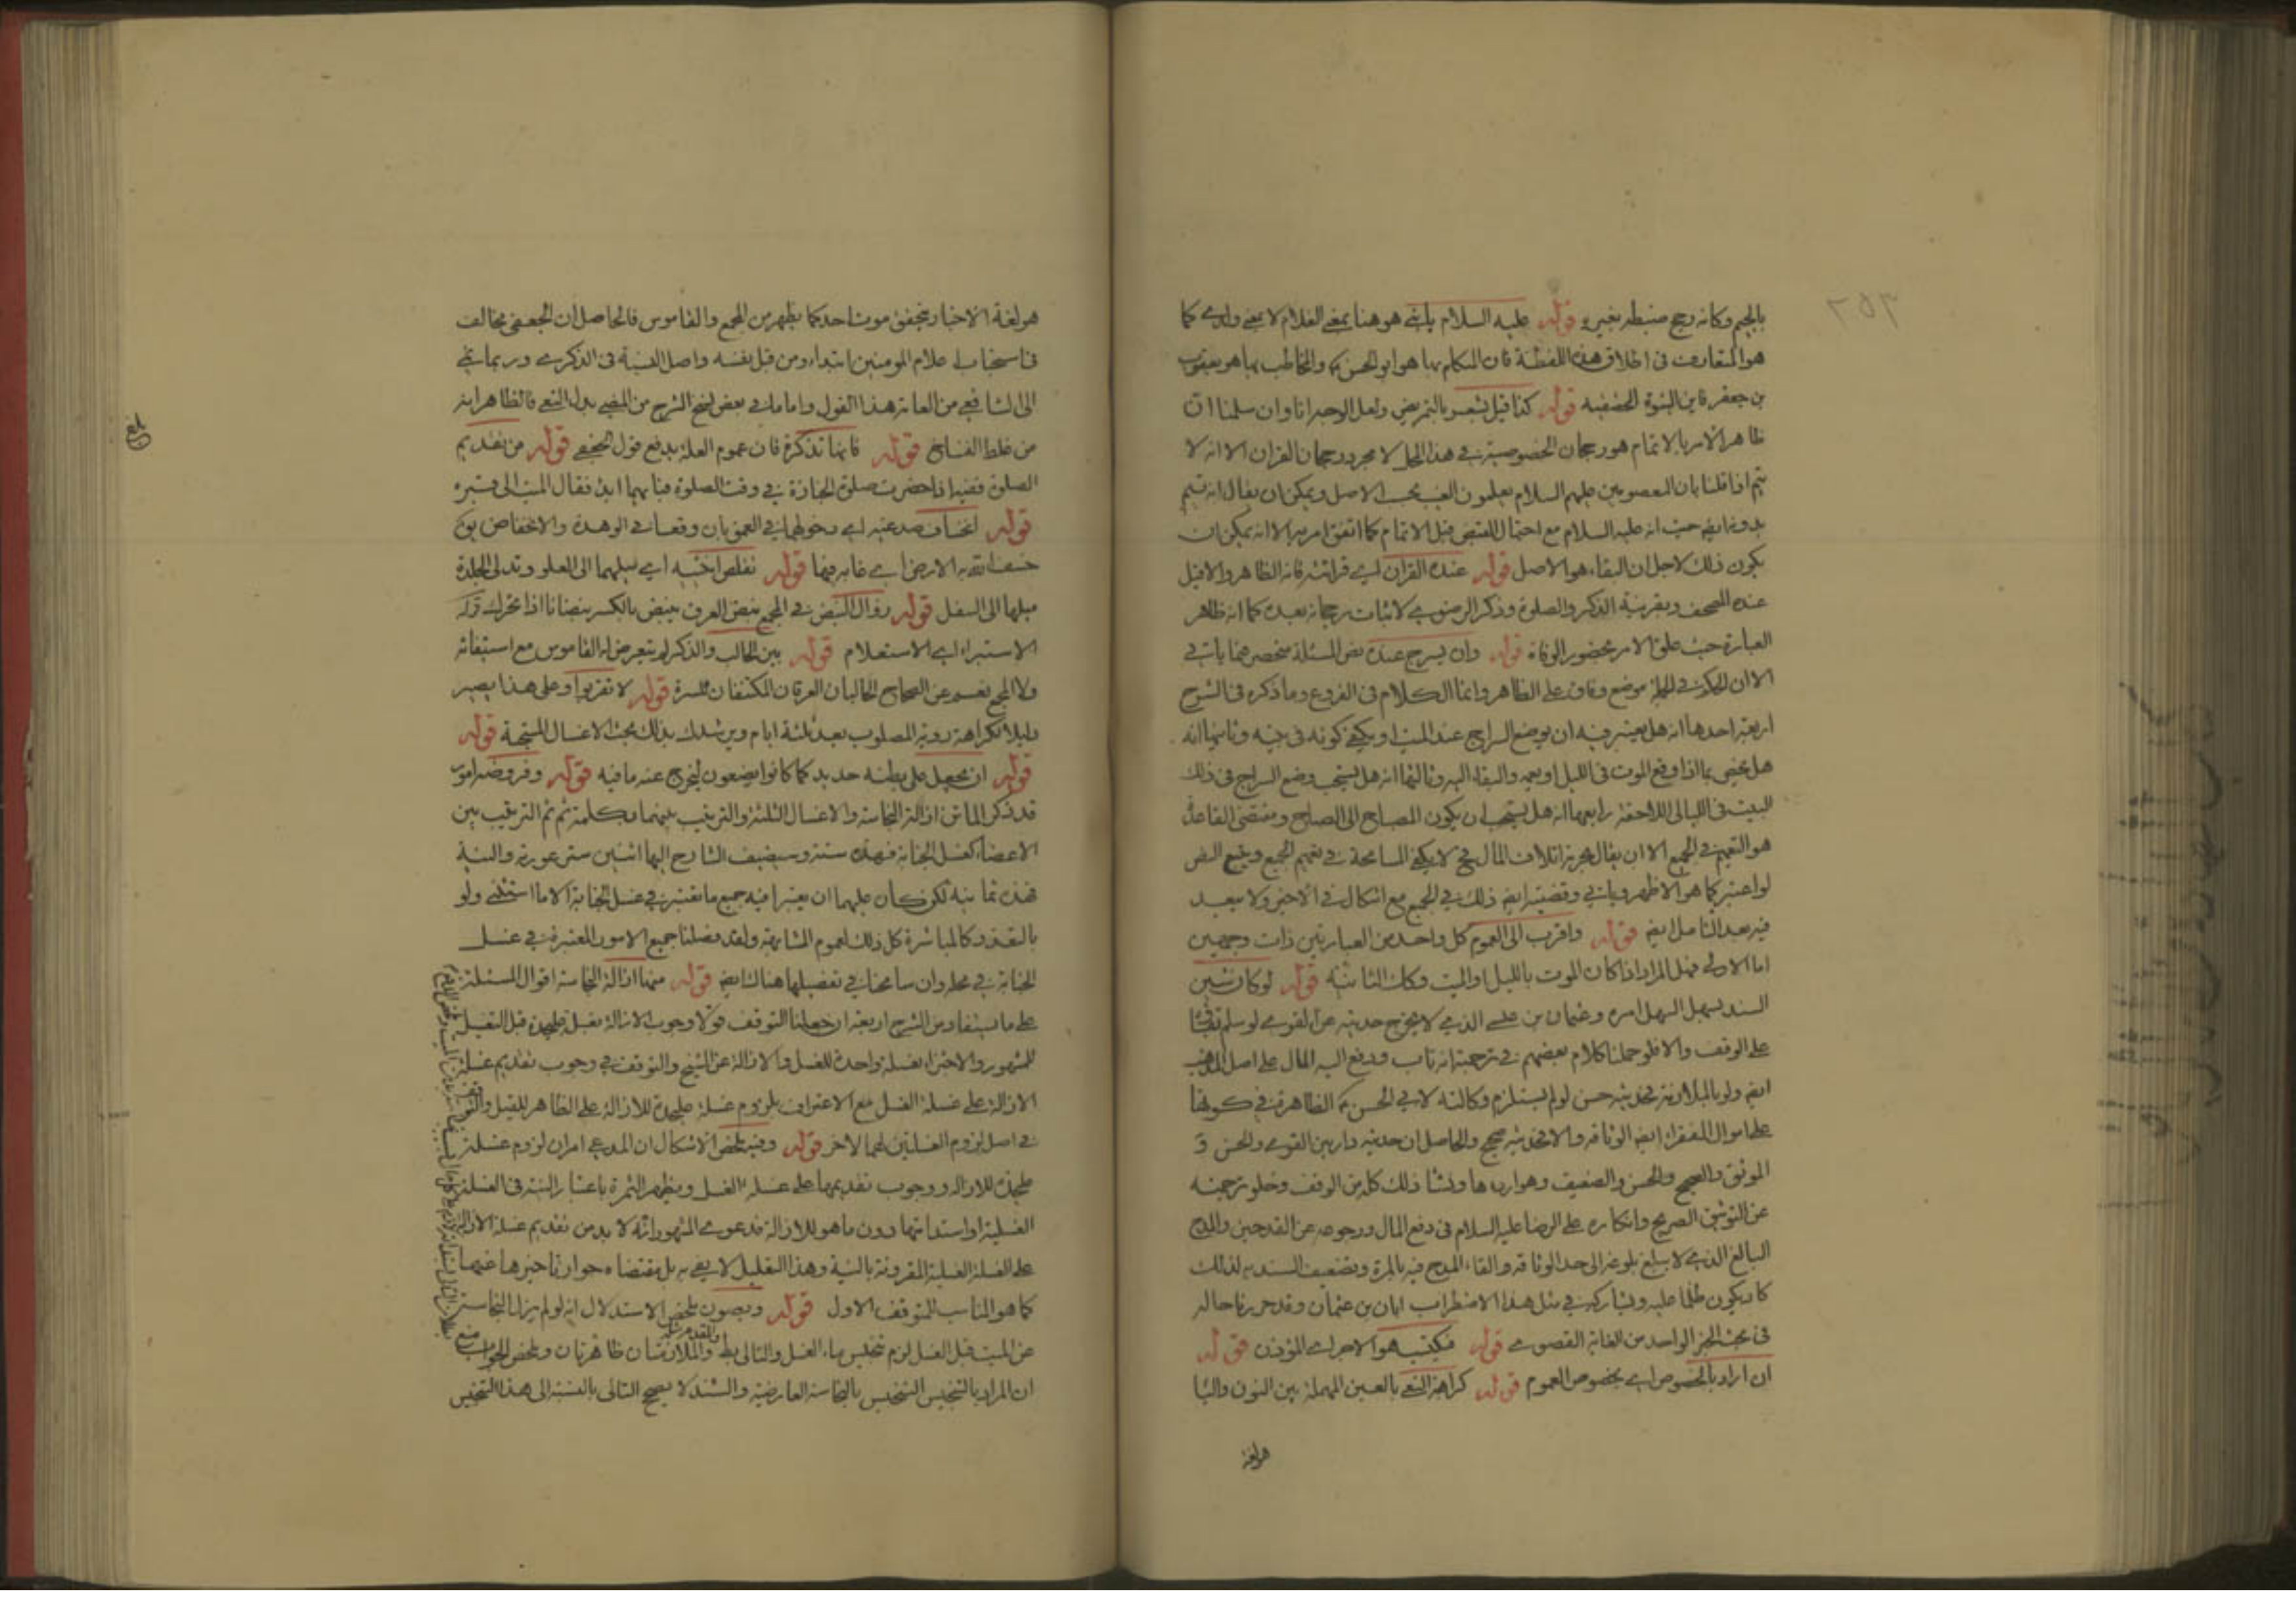 بالجيم وكانه رجح ضبطه بغيره قوله عليه السلام يا بني هو هنا بمعنى الغلام لا بمعنى ولدي كما
هو المتعارف في اطلاق هذه اللفظة فان المتكلم بها هو ابو الحسن ع والمخاطب بها هو يعقوب
بن جعفر فاين البنوة الحقيقية قوله كذا قيل يشعر بالتمريض ولعل الوجه انا وان سلمنا ان
ظاهر الامر بالاتمام هو رجحان الخصوصية في هذا المحل لا مجرد رجحان القران الا انه لا
يتم اذا قلنا بان المعصومين عليهم السلام يعلمون الغيب بحسب الاصل ويمكن ان يقال انه يتم
بدونه ايضا حيث انه عليه السلام مع احتمال القبض قبل الاتمام كما اتفق امر به الا انه يمكن ان
يكون ذلك لاجل ان البقاء هو الاصل قوله عنده القران اي قرائته فانه الظاهر والا قيل
عنده المصحف وبقرينة الذكر والصلوة وذكر الرضوي لاثبات رجحانه بعده كما انه ظاهر
العبارة حيث علق الامر بحضور الوفاة قوله وان يسرج عنده نص المسئلة منحصر فيما ياتي
الا ان الحكم في الجملة موضع وفاق على الظاهر وانما الكلام في الفروع وما ذكره في الشرح
اربعة احدها انه هل يعتبر فيه ان يوضع السراج عند الميت او يكفي كونه في بيته وثانيها انه
هل يختص بما اذا وقع الموت في الليل او يعمه والبقاء اليه وثالثها انه هل يستحب وضع السراج في ذلك
البيت في الليالي اللاحقة رابعها انه هل يستحب ان يكون المصباح الى الصباح ومقتضى القاعدة
هو التعميم في الجميع الا ان يقال بحرمة اتلاف المال فح لا يكفي المسامحة في تعميم الجميع ويتبع النص
لو اعتبر كما هو الاظهر وياتي وقضيته ايضا ذلك في الجميع مع اشكال في الاخير ولا يبعد
فيه بعد التامل ايضا قوله واقرب الى العموم كل واحد من العبارتين ذات وجهين
اما الاولى فهل المراد اذا كان الموت بالليل او الميت وكك الثانية قوله لو كان شين
السند بسهل السهل امره وعثمان بن عيسى الذي لا يخرج حديثه عن القوي لو سلم بقائه
على الوقف والا فلو حملنا كلام بعضهم في ترجمته انه تاب ودفع اليه المال على اصل المذهب
ايضا ولو بالملازمة فحديثه حسن لو لم يستلزم وكالته لابي الحسن ع الظاهرة في كونها
على اموال الفقراء ايضا الوثاقة والا فحديثه صحيح والحاصل ان حديثه دار بين القوي والحسن و
الموثق والصحيح والحسن والضعيف وهو اردها ومنشا ذلك كله من الوقف وخلو ترجمته
عن التوثيق الصريح وانكاره على الرضا عليه السلام في دفع المال ورجوعه عن القدحين والمدح
البالغ الذي لا يبلغ بلوغه الى حد الوثاقة والقاء المدح فيه بالمرة وتضعيف السند به لذلك
كاد يكون ظلما عليه ويشاركه في مثل هذا الاضطراب ابان بن عثمان وقد حررنا حاله
في بحث الخبر الواحد من الغاية القصوى قوله فيكتب هو الاجر اي المؤذن قوله
ان اراد بالخصوص اي بخصوص العموم قوله كراهة النعي بالعين المهملة بين النون والياء
هو لغة
هو لغة الاخبار بتحقق موت احد كما يظهر من المجمع والقاموس فالحاصل ان الجعفي مخالف
في استحباب اعلام المومنين ابتداء ومن قبل نفسه واصل النسبة في الذكرى وربما نفي
الى الشافعي من العامة هذا القول واما ما في بعض نسخ الشرح من المضي بدل النعي فالظاهر انه
من غلط النساخ قوله فانها تذكرة فان عموم العلة يدفع قول الجعفي قوله من تقديم
الصلوة ففيه اذا حضرت صلوة الجنازة في وقت الصلوة فبايهما ابدء فقال الميت الى قبره
قوله انخساف صدغيه اي دخولهما في العمق بان وقعا في الوهدة والانخفاض يق
خسف الله به الارض اي غاب به فيها قوله تقلص انثييه اي ميلهما الى العلو وتدلى الجلدة
ميلها الى السفل قوله زوال النبض في المجمع نبض العرق ينبض بالكسر نبضانا اذا تحرك قوله
الاستبراء اي الاستعلام قوله بين الحالب والذكر لم يتعرض له القاموس مع استيفائه
ولا المجمع نعم عن الصحاح الحالبان العرقان المكتنفان للسرة قوله لا تقربوا وعلى هذا يصير
دليلا لكراهة روية المصلوب بعد ثلثة ايام ويرشدك بذلك بحث الاغسال المستحبة قوله
قوله ان يجعل على بطنه حديد كما كانوا يضعون ليخرج عنه ما فيه قوله وفروضه امور
قد ذكر الماتن ازالة النجاسة والاغسال الثلثة والترتيب بينهما بكلمة ثم ثم الترتيب بين
الاعضاء كغسل الجنابة فهذه ستة وسيضيف الشارح اليها اثنين ستر عورته والنية
فهذه ثمانية لكن كان عليهما ان يعتبرا فيه جميع ما يعتبر في غسل الجنابة الا ما استثني ولو
بالتعذر كالمباشرة كل ذلك لعموم المشابهة ولقد فصلنا جميع الامور المعتبرة في غسل
الجنابة في محله وان سامحنا في تفصيلها هناك ايضا قوله منها ازالة النجاسة اقوال المسئلة
على ما يستفاد من الشرح اربعة ان جعلنا التوقف قولا وجوب الازالة بغسلة عليحدة قبل التغسيل
للمشهور والاجتزاء بغسلة واحدة للغسل والازالة عن الشيخ والتوقف في وجوب تقديم غسلة
الازالة على غسلة الغسل مع الاعتراف بلزوم غسلة عليحدة للازالة على الظاهر للقيل والتوقف
في اصل لزوم الغسلتين لهما لاخر قوله وفيه ملخص الاشكال ان المدعى امران لزوم غسلة
عليحدة للازالة ووجوب تقديمها على غسلة الغسل ويظهر الثمرة باعتبار النية في الغسلة
الغسلية او استدامتها دون ما هو للازالة فدعوى المشهور انه لا بد من تقديم غسلة الازالة
على الغسلة الغسلية المقرونة بالنية وهذا التعليل لا يفي به بل مقتضاه جواز تاخيرها عنها
كما هو المناسب للتوقف الاول قوله وبصون ملخص الاستدلال انه لو لم يزل النجاسة
عن الميت قبل الغسل لزم تنجيس ماء الغسل والتالي بط فالمقدم مثله والملازمتان ظاهرتان وملخص الجواب منع
ان المراد بالتنجيس التنجيس بالنجاسة العارضية والسند لا يصح التالي بالنسبة الى هذا التنجيس
بلغ